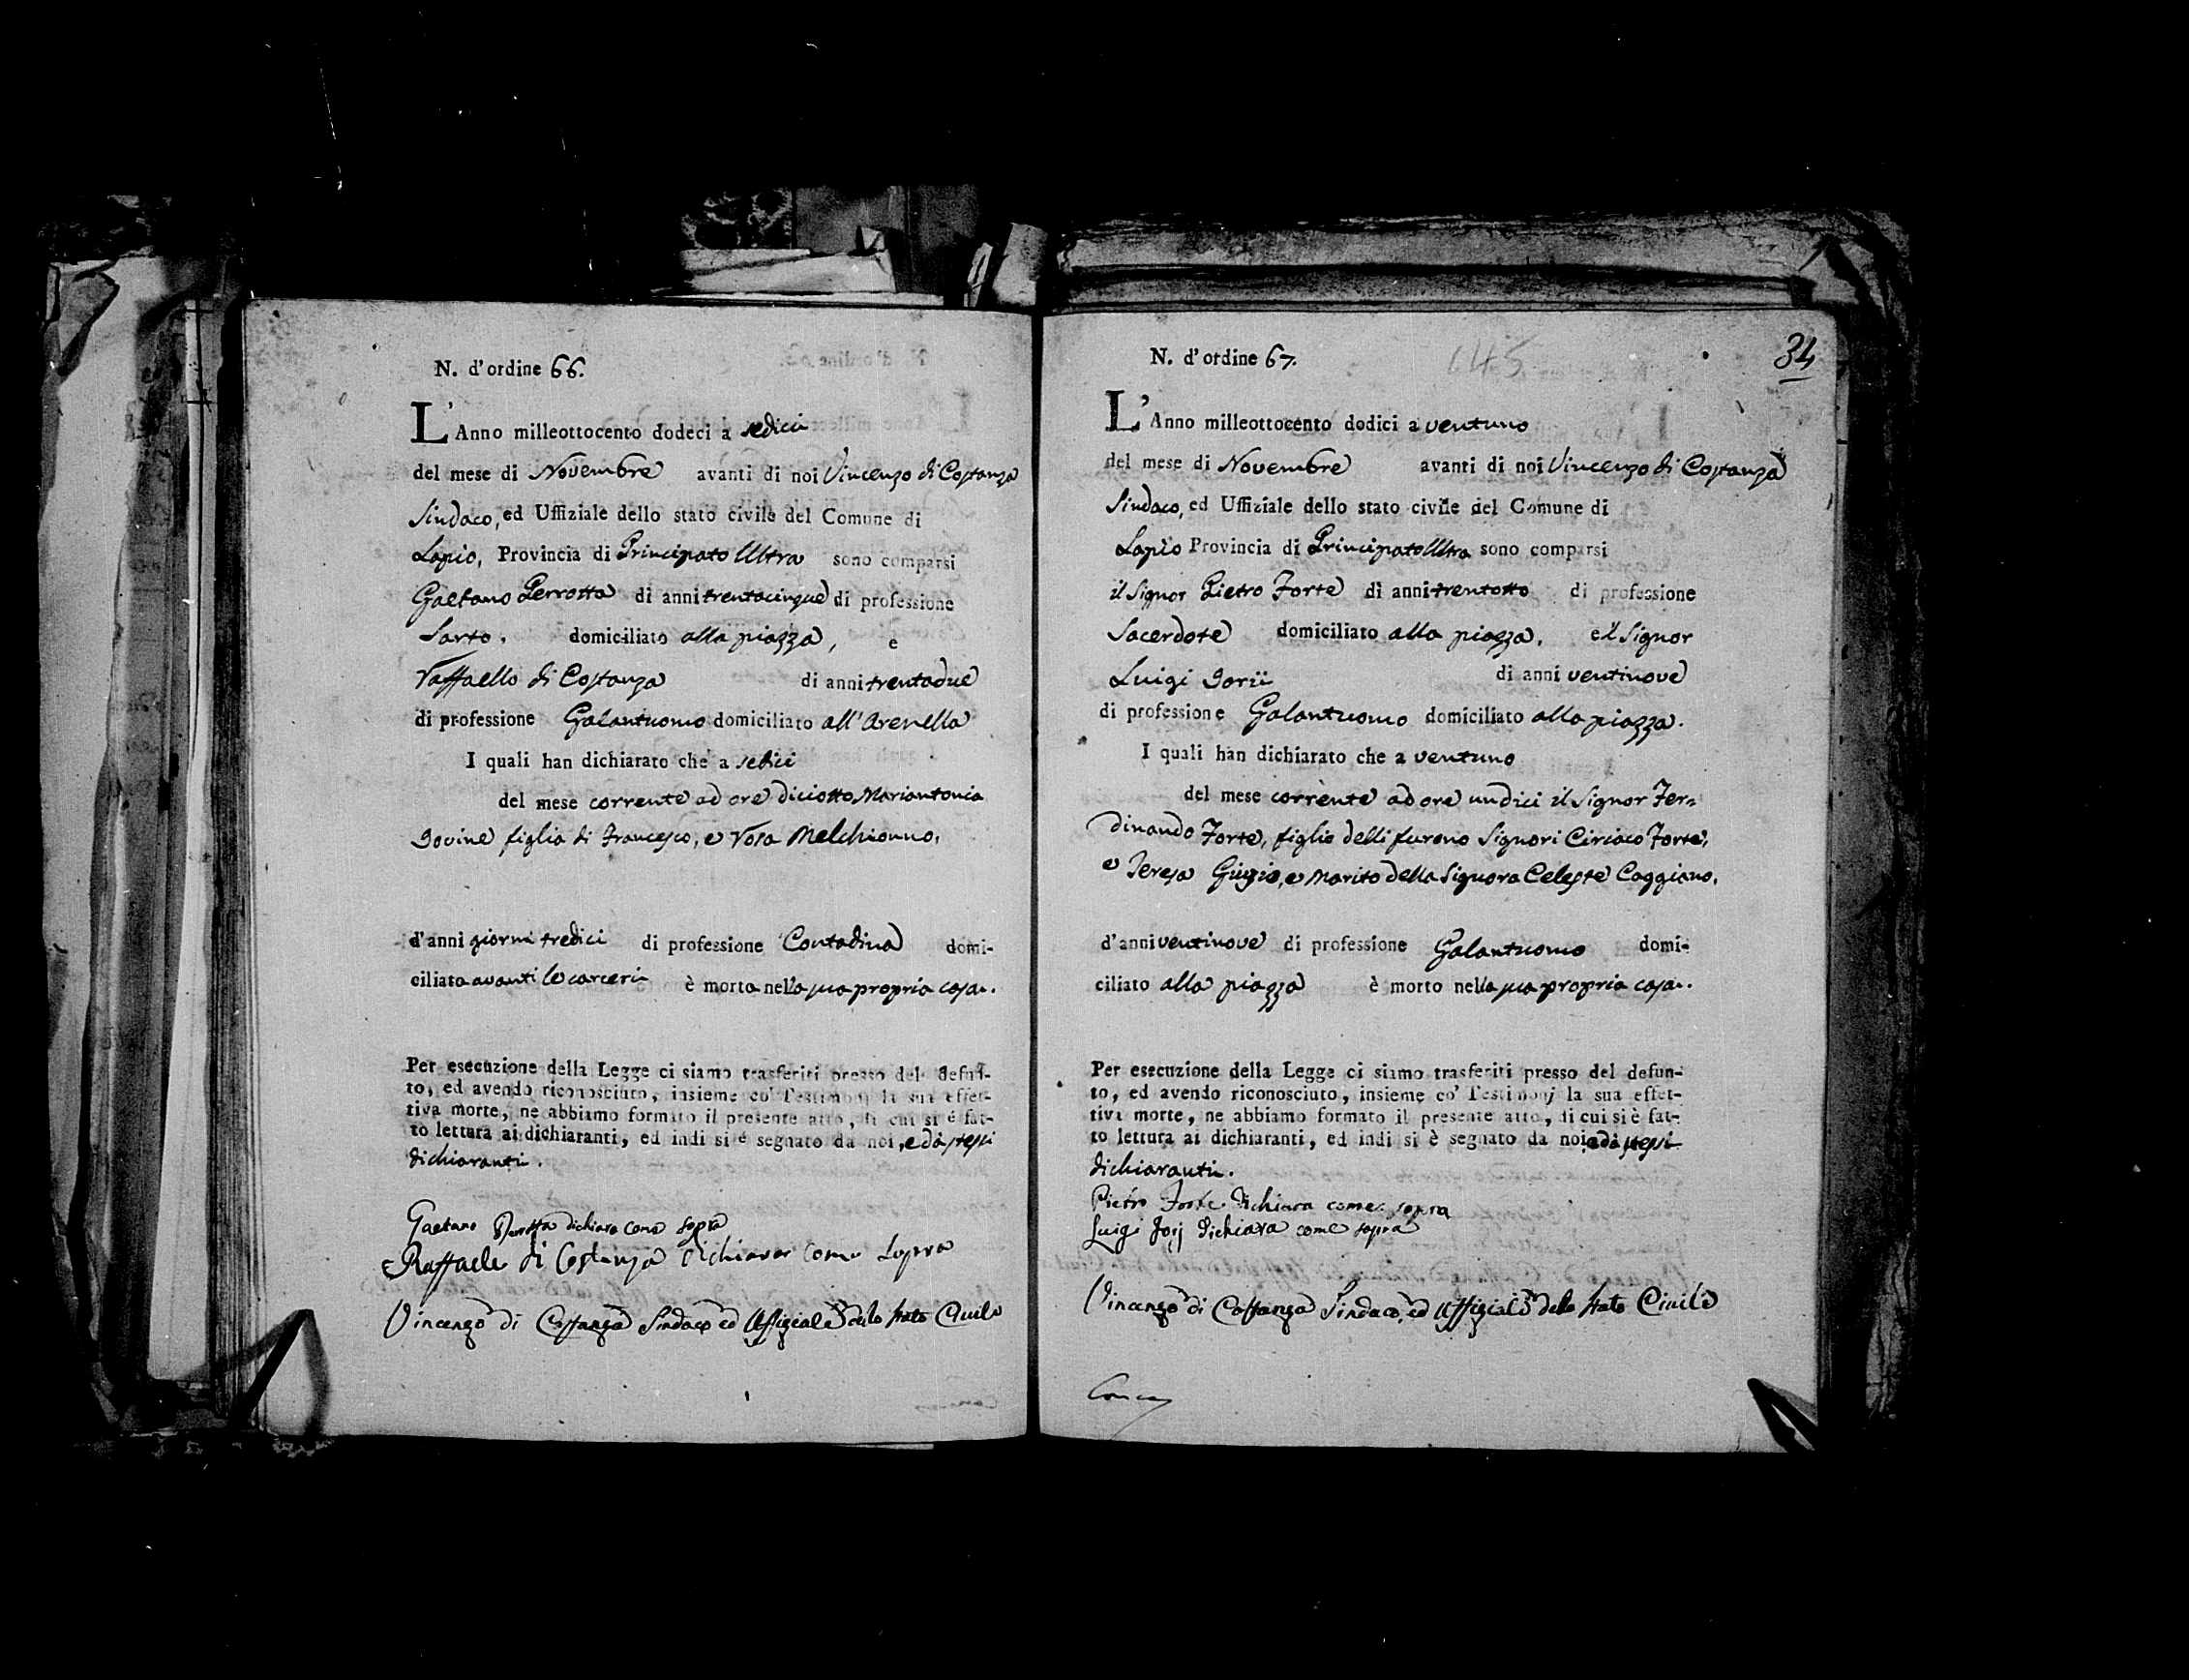 N. d'ordine 66.
L'Anno milleottocento dodeci a sedici
del mese di Novembre avanti di noi Vincenzo di Costanza
Sindaco, ed Uffiziale dello stato civile del Comune di
Lapio, Provincia di Principato Ultra sono comparsi
Gaetano Perrotta di anni trentacinque di professione
Sarto, domiciliato alla piazza, e
Raffaello di Costanza di anni trentadue
di professione Galantuomo domiciliato all'Arenella
I quali han dichiarato che a sedici
del mese corrente ad ore diciotto Mariantonia
Iovine figlia di Francesco, e Rosa Melchionno,
d'anni giorni tredici di professione Contadina domi-
ciliata avanti le carceri è morta nella sua propria casa.
Per esecuzione della Legge ci siamo trasferiti presso del defun-
to, ed avendo riconosciuto, insieme co' Testimonj la sua effet-
tiva morte, ne abbiamo formato il presente atto, di cui si è fat-
to lettura ai dichiaranti, ed indi si è segnato da noi, e da stessi
dichiaranti.
Gaetano Perrotta dichiara come sopra
Raffaele di Costanza dichiara come sopra
Vincenzo di Costanza Sindaco ed Uffiziale dello stato Civile
34
N. d'ordine 67.
145
L'Anno milleottocento dodici a ventuno
del mese di Novembre avanti di noi Vincenzo di Costanza
Sindaco, ed Uffiziale dello stato civile del Comune di
Lapio Provincia di Principato Ultra sono comparsi
il Signor Pietro Forte di anni trentotto di professione
Sacerdote domiciliato alla piazza, e il Signor
Luigi Iorii di anni ventinove
di professione Galantuomo domiciliato alla piazza.
I quali han dichiarato che a ventuno
del mese corrente ad ore undici il Signor Fer=
dinando Forte, figlio delli furono Signori Ciriaco Forte,
e Teresa Giuzio, e Marito della Signora Celeste Caggiano,
d'anni ventinove di professione Galantuomo domi-
ciliato alla piazza è morto nella sua propria casa.
Per esecuzione della Legge ci siamo trasferiti presso del defun-
to, ed avendo riconosciuto, insieme co' Testimonj la sua effet-
tiva morte, ne abbiamo formato il presente atto, di cui si è fat-
to lettura ai dichiaranti, ed indi si è segnato da noi, e da stessi
dichiaranti.
Pietro Forte dichiara come sopra
Luigi Iorij dichiara come sopra
Vincenzo di Costanza Sindaco, ed Uffiziale dello stato Civile